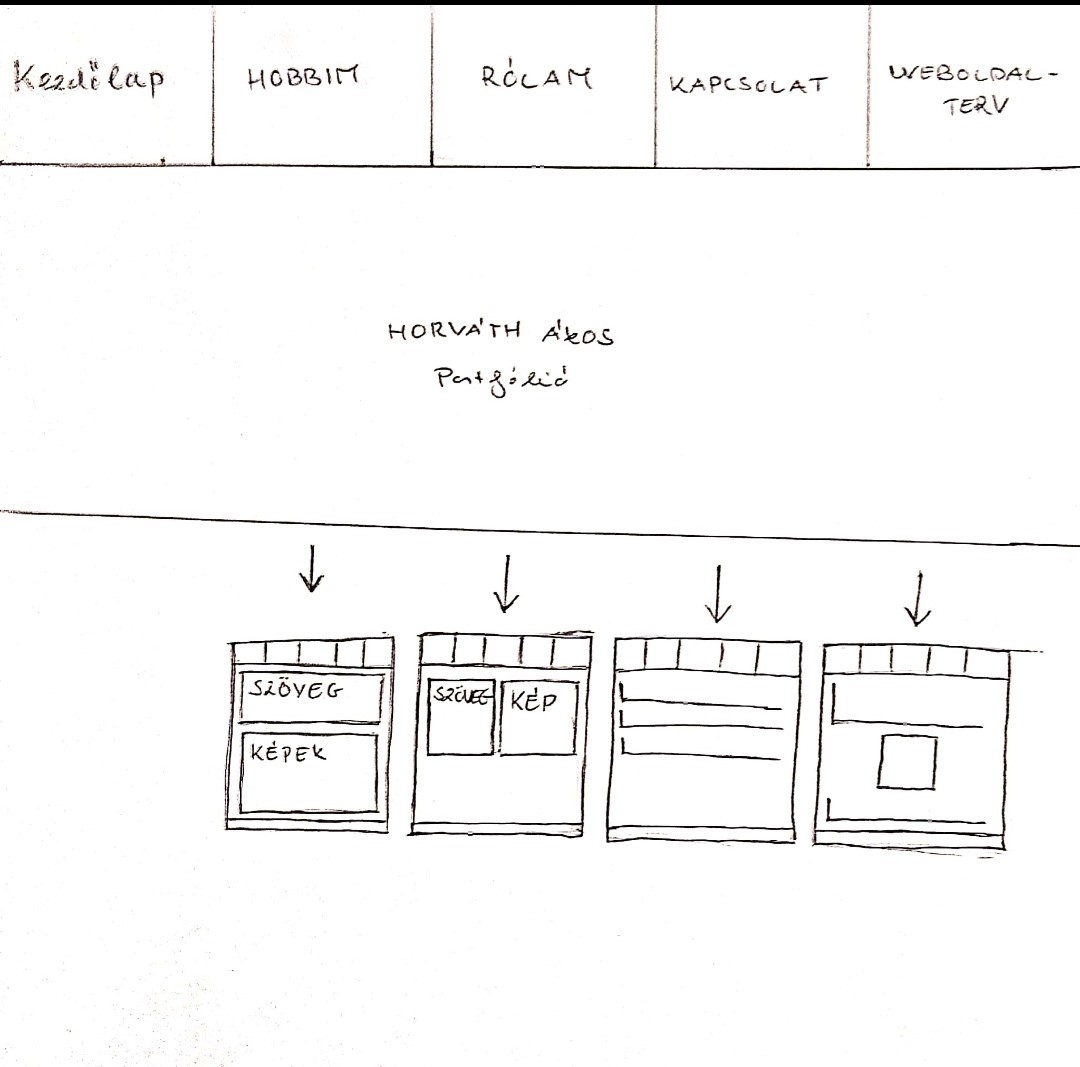 Kezdőlap
HOBBIM
RÓLAM
KAPCSOLAT
WEBOLDAL-
TERV
HORVÁTH ÁKOS
Portfólió
SZÖVEG
KÉPEK
SZÖVEG
KÉP